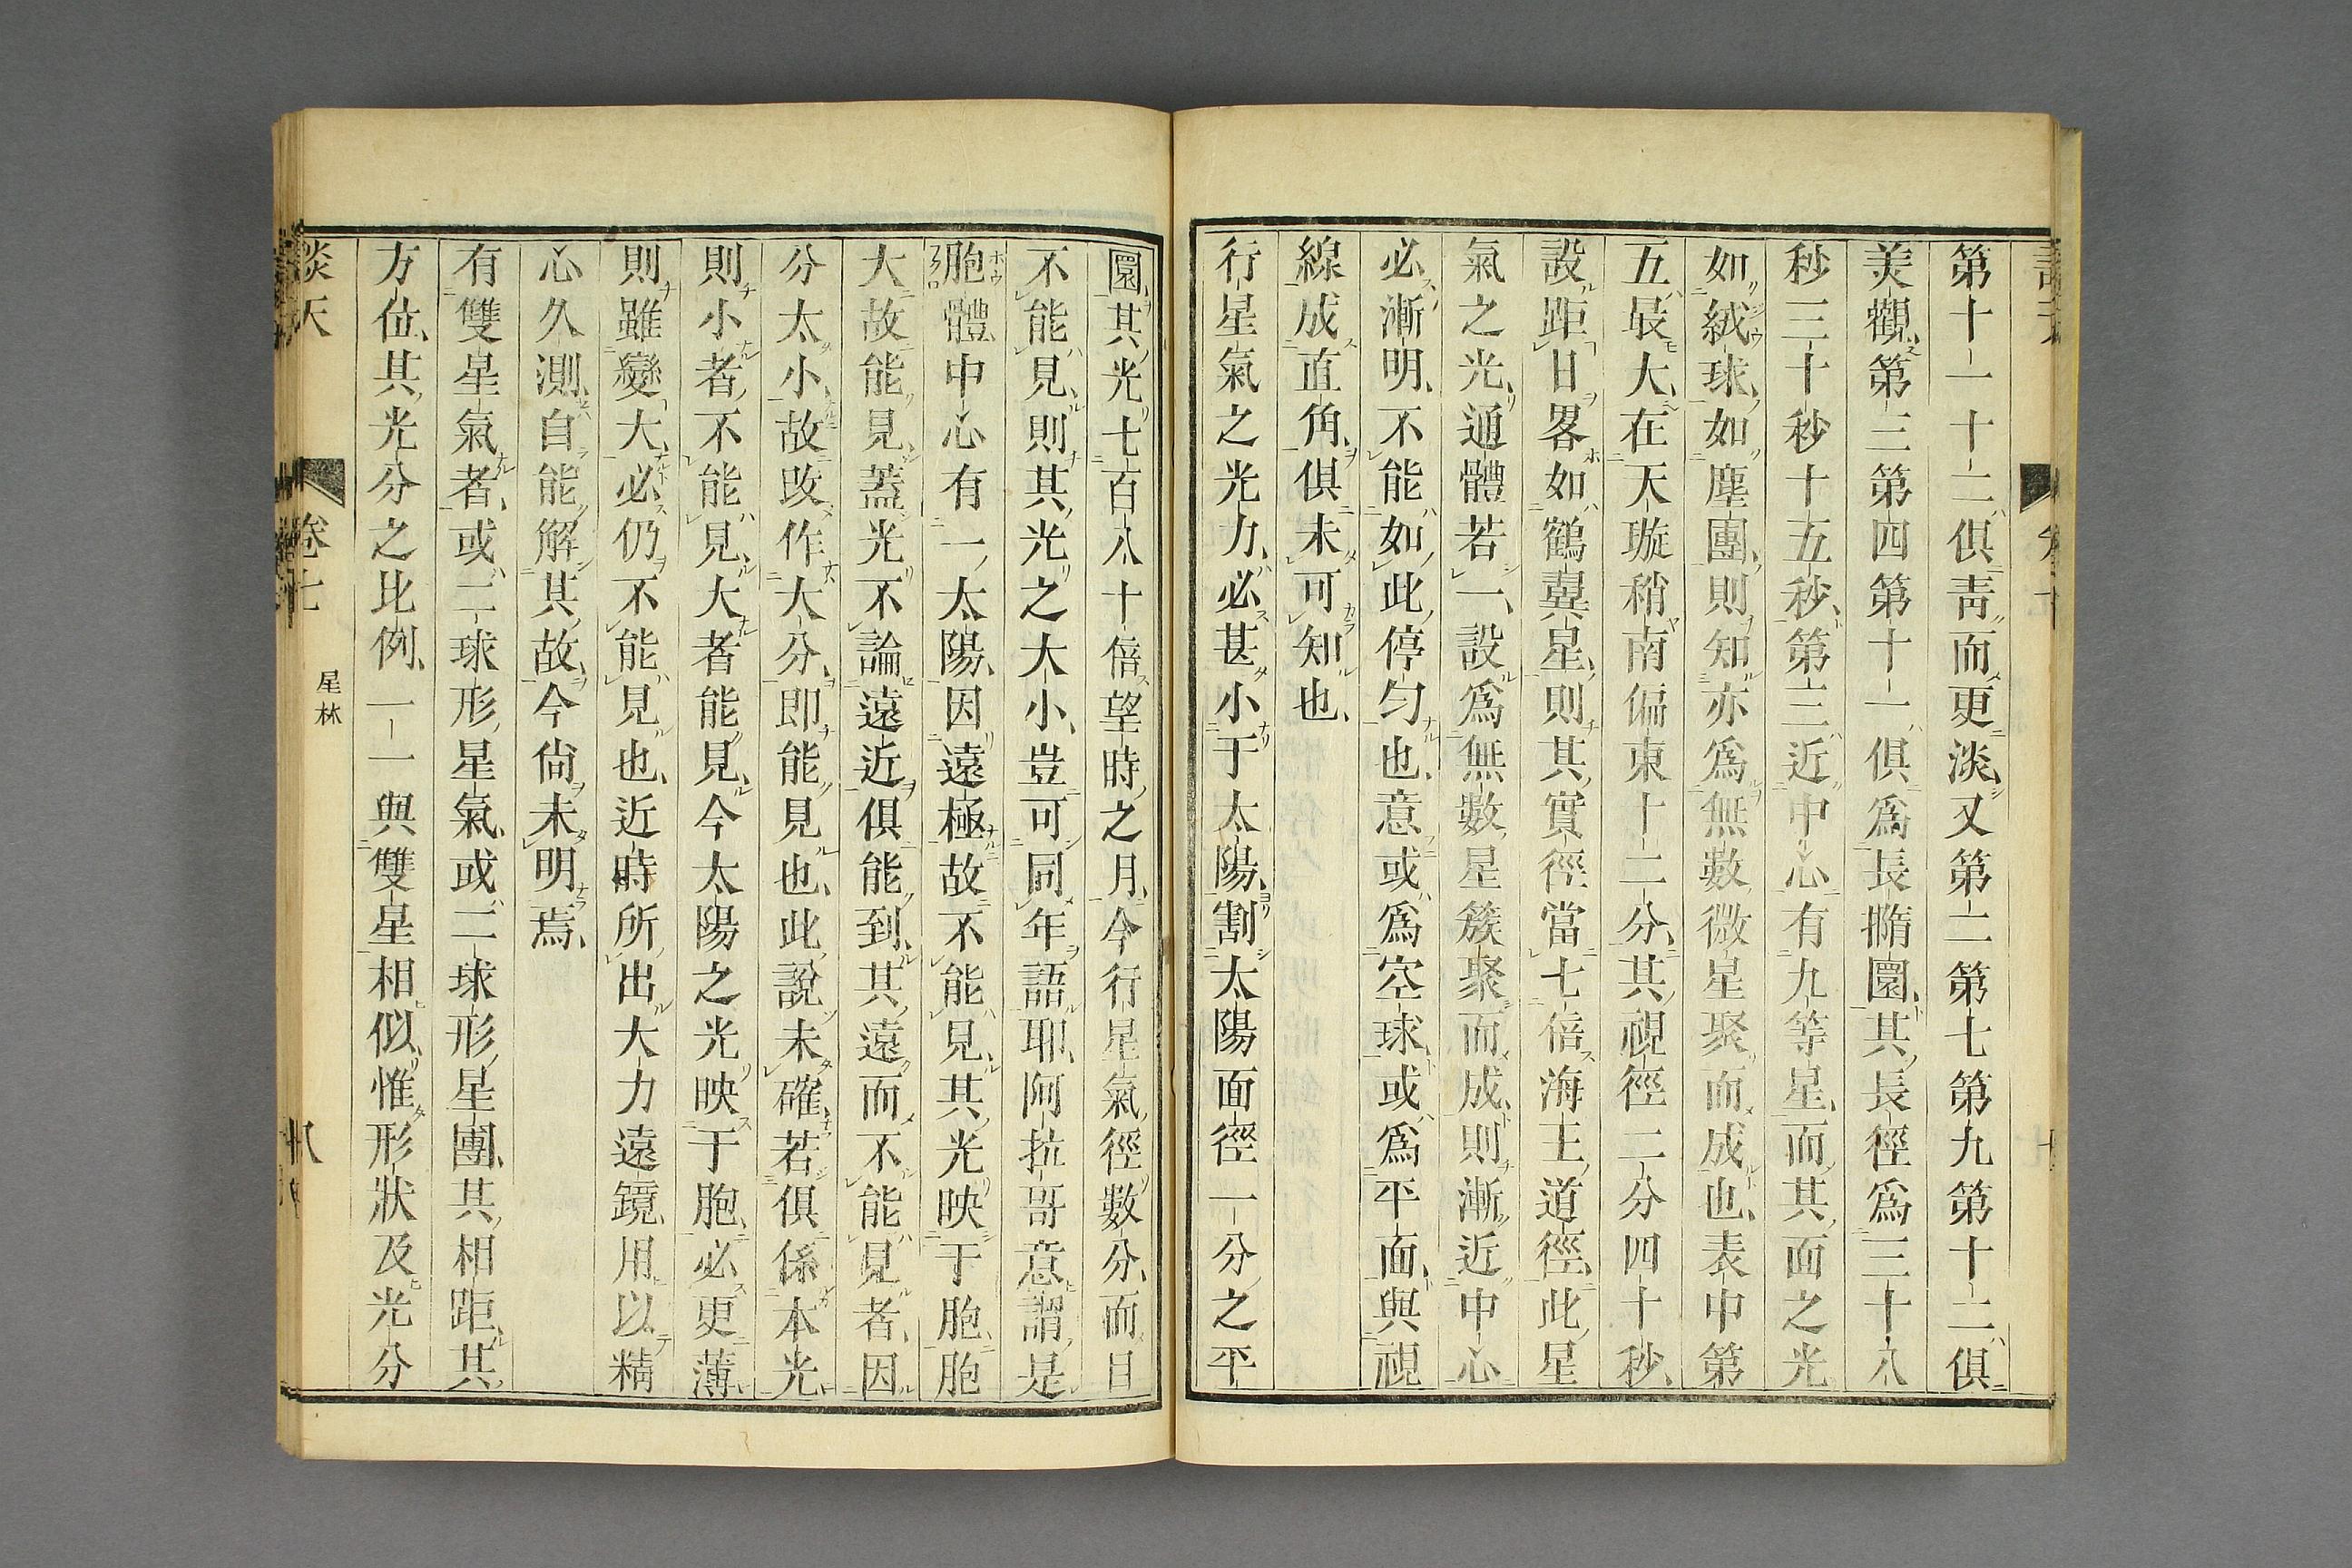 第十一十二俱靑而更淡又第二第七第九第十二俱
美觀第三第四第十一俱爲長橢圜其長徑爲三十八
秒三十秒十五秒第三近中心有九等星而其面之光
如絨球如塵團則知亦爲無數微星聚而成也表中第
五最大在天璇稍南偏東十二分其視徑二分四十秒
設距日畧如鶴翼星則其實徑當七倍海王道徑此星
氣之光通體若一設爲無數星簇聚而成則漸近中心
必漸明不能如此停勻也意或爲空球或爲平面與視
線成直角俱未可知也
行星氣之光力必甚小于太陽割太陽面徑一分之平
圜其光七百八十倍望時之月今行星氣徑數分而目
不能見則其光之大小豈可同年語耶阿拉哥意謂是
胞體中心有一太陽因遠極故不能見其光映于胞胞
大故能見蓋光不論遠近俱能到其遠而不能見者因
分太小故改作大分卽能見也此說未確若俱係本光
則小者不能見大者能見今太陽之光映于胞必更薄
則雖變大必仍不能見也近時所出大力遠鏡用以精
心久測自能解其故今尙未明焉
有雙星氣者或二球形星氣或二球形星團其相距其
方位其光分之比例一一與雙星相似惟形狀及光分
談天
卷七
星林
八